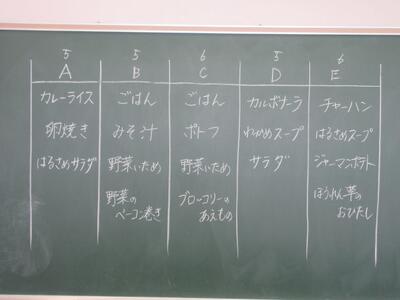 5 5 6 5 6
A B C D E
カレーライス ごはん ごはん カルボナーラ チャーハン
卵焼き みそ汁 ポトフ わかめスープ はるさめスープ
はるさめサラダ 野菜いため 野菜いため サラダ ジャーマンポテト
野菜の ブロッコリーの ほうれん草の
ベーコン巻き あえもの おひたし